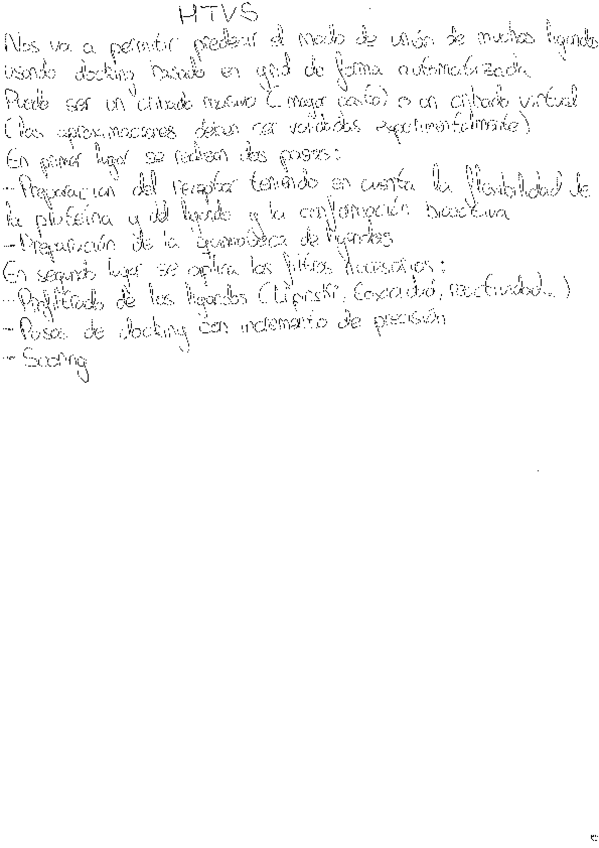 HTVS
Nos va a permitir predecir el modo de unión de muchos ligandos
usando docking basado en grid de forma automatizada
Puede ser un cribado masivo (mayor costo) o un cribado virtual
(las aproximaciones deben ser validadas experimentalmente)
En primer lugar se realizan dos pasos:
-Preparación del receptor teniendo en cuenta la flexibilidad de
la proteína y del ligando y la conformación bioactiva
-Preparación de la quimioteca de ligandos
En segundo lugar se aplica los filtros necesarios:
-Prefiltrado de los ligandos (Lipinski, reactividad...)
-Pasos de docking con incremento de precisión
-Scoring